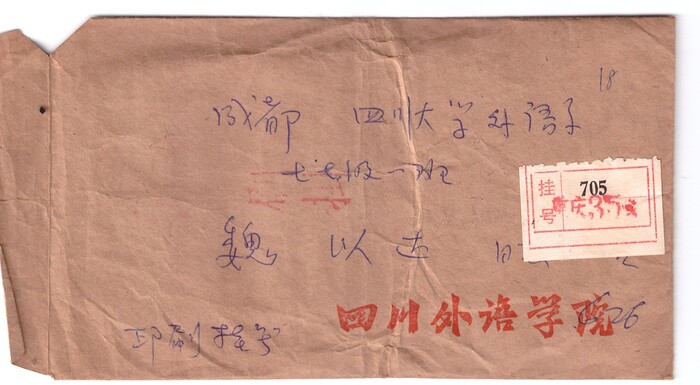 18
成都 四川大学外语系
七七级一班
挂号
705
重庆35支
魏 以达
四川外语学院
印刷挂号